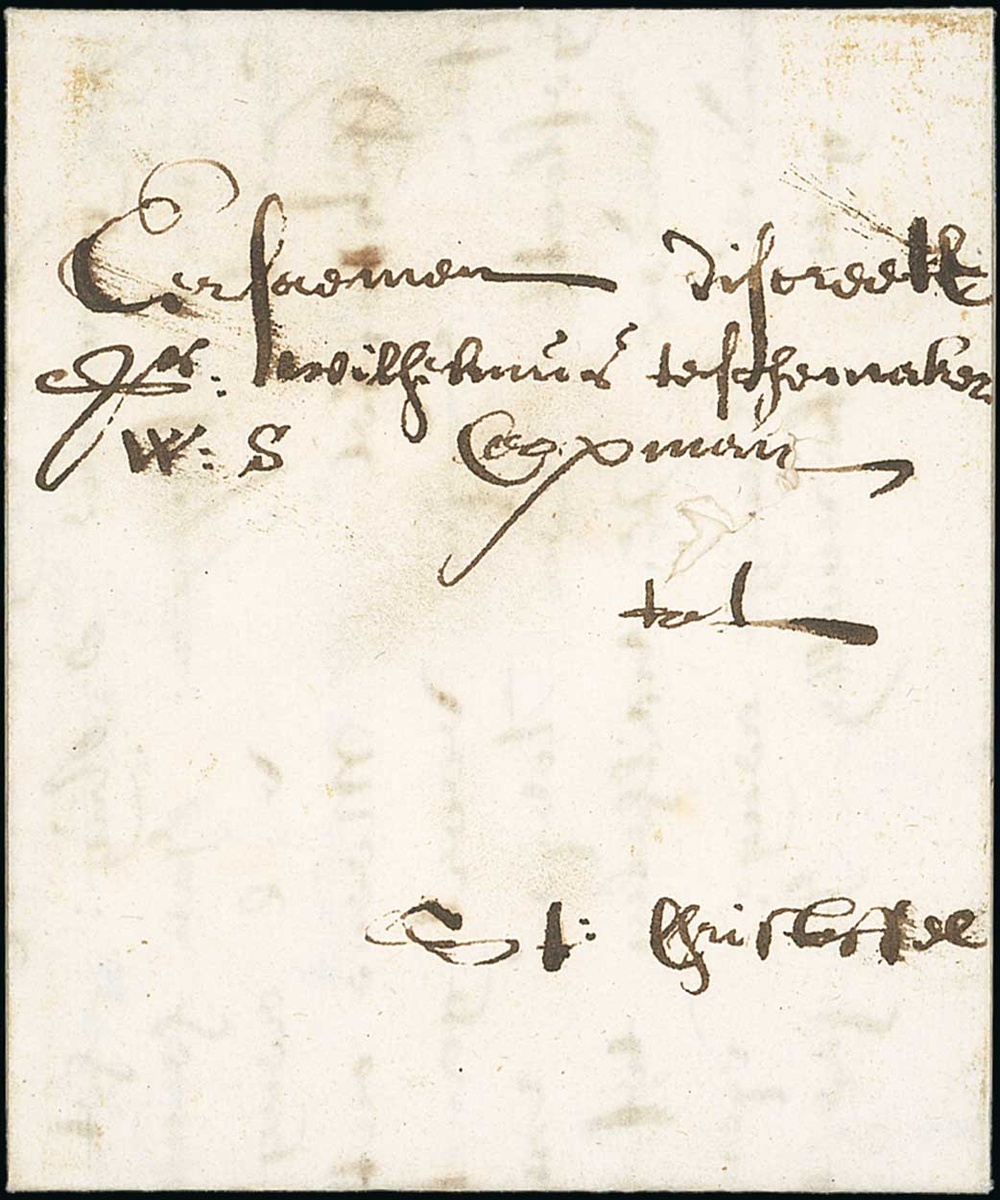 Eersaemen discreete
Sr: wilhelmus teschemaker
W: S Copman
tot
St: Christoffel